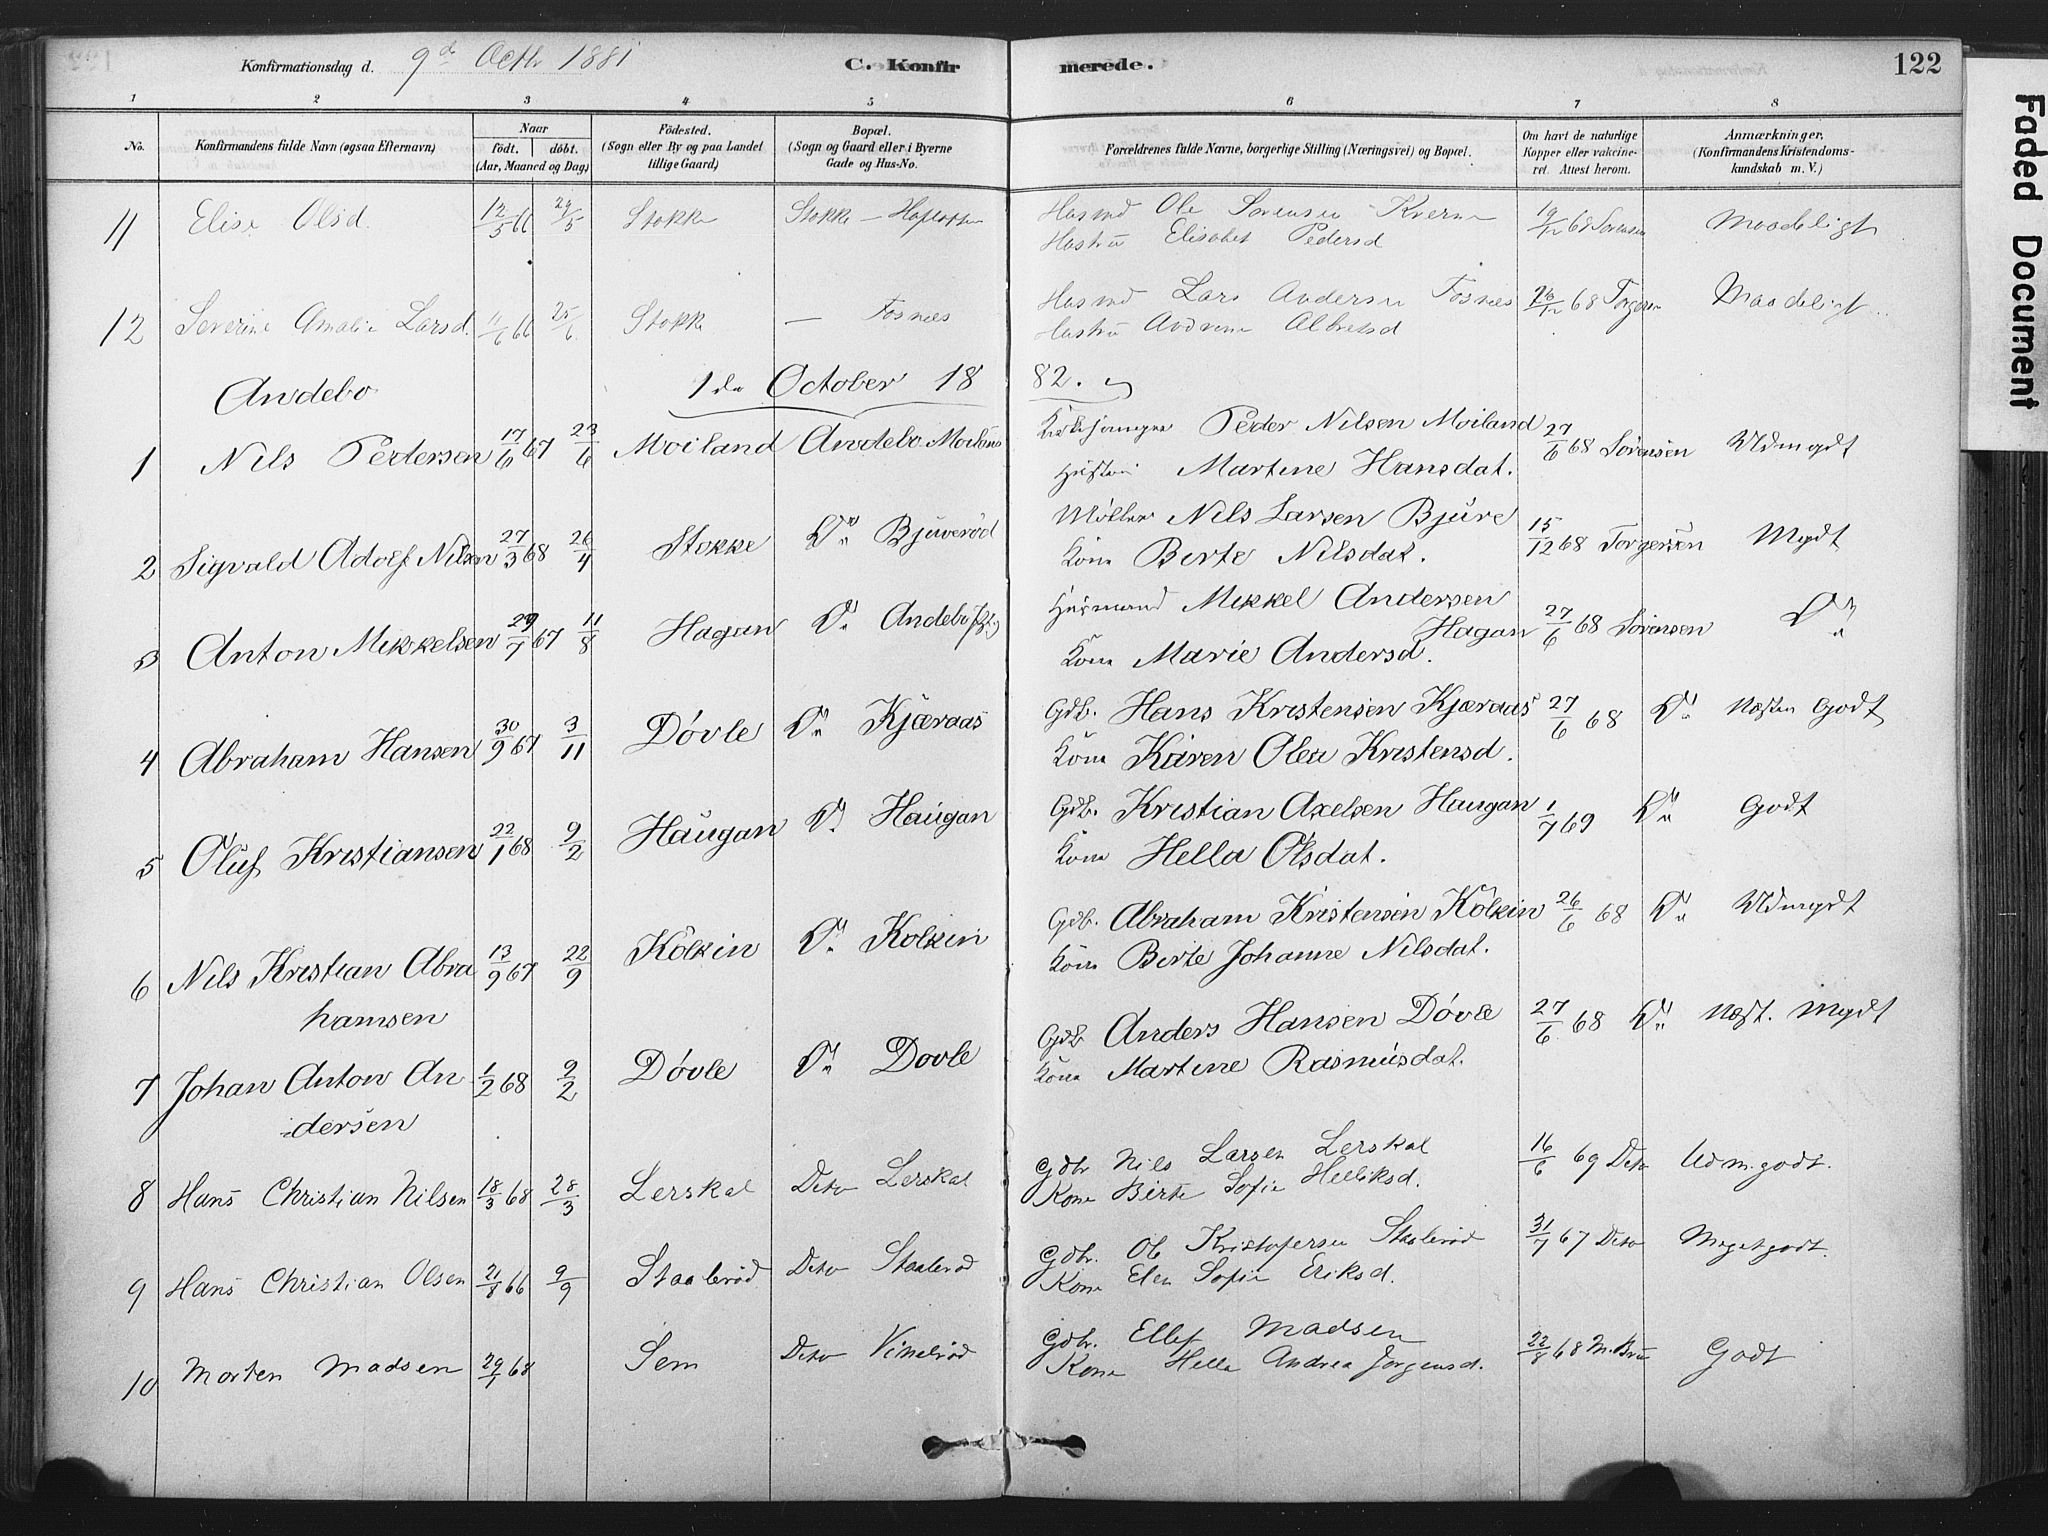 Konfirmationsdag d. 9de Octbr 1881 C. Konfir merede. 122
1 2 3 4 5 6 7 8
No. Konfirmandens fulde Navn (ogsaa Efternavn) Naar födt. döbt. (Aar, Maaned og Dag) Födested. (Sogn eller By og paa Landet tillige Gaard) Bopæl. (Sogn og Gaard eller i Byerne Gade og Hus-No. Forældrenes fulde Navne, borgerlige Stilling (Næringsvei) og Bopæl. Om havt de naturlige Kopper eller vakcineret. Attest herom. Anmærkninger. (Konfirmandens Kristendomskundskab m. V.)
11 Elise Olsd. 12/5 66 29/5 Stokke Stokke — Ole Sorensen Kverne 19/12 68 Sorensen Maadeligt
Elisabet Pedersd
12 Severine Amalie Larsd. 11/6 66 25/6 Stokke — Fosnæs Lars Andersen Fosnæs 26/12 68 Torgersen Maadeligt
Andrine Albretsd
Andebo 1de October 18 82.
1 Nils Pedersen 17/6 67 23/6 Moiland Andebo Moiland Peder Nilsen Moiland 27/6 68 Sörensen Udmgdt
Martine Hansdat.
2 Sigvald Adolf Nilsen 27/3 68 26/4 Stokke Do Bjuverød Møller Nils Larsen Bjúre 15/12 68 Torgersen Mgdt
Kone Berte Nilsdat.
3 Anton Mikkelsen 29/7 67 11/8 Hagan Do Andebo Húsmand Mikkel Andersen
Hagan 27/6 68 Sörensen Do
Kone Marie Andersd.
4 Abraham Hansen 30/9 67 3/11 Døvle Do Kjæraas Gdb. Hans Kristensen Kjæraas 27/6 68 Do Næsten Godt
Kone Karen Olea Kristensd.
5 Oluf Kristiansen 22/1 68 9/2 Haugan Do Haugan Gdb. Kristian Axelsen Haugan 1/7 69 Do Godt
Kone Hella Olsdat.
6 Nils Kristian Abra 13/9 67 22/9 Kolkin Do Kolkin Gdb. Abraham Kristensen Kolkin 26/6 68 Do Udmgdt
hamsen Kone Berte Johanne Nilsdat.
7 Johan Anton An 1/2 68 9/2 Døvle Do Dovle Gdb Anders Hansen Døvle 27/6 68 Do Næst. Mgdt
dersen Kone Martine Rasmusdat.
8 Hans Christian Nilsen 18/3 68 28/3 Lerskal Deto Lerskal Gdbr Nils Larsen Lerskal 16/6 69 Deto Udm. godt.
Kone Birte Sofie Helliksd.
9 Hans Christian Olsen 21/8 66 9/9 Staalerød Deto Staalerød Gdbr. Ole Kristofersen Staalerød 31/7 67 Deto Meget godt.
Kone Elen Sofie Eriksd.
10 Morten Madsen 29/1 68 Sem Deto Gdbr. Ellef Madsen 22/8 68 Godt
Kone Helle Andrea Jorgensd.
Faded Document